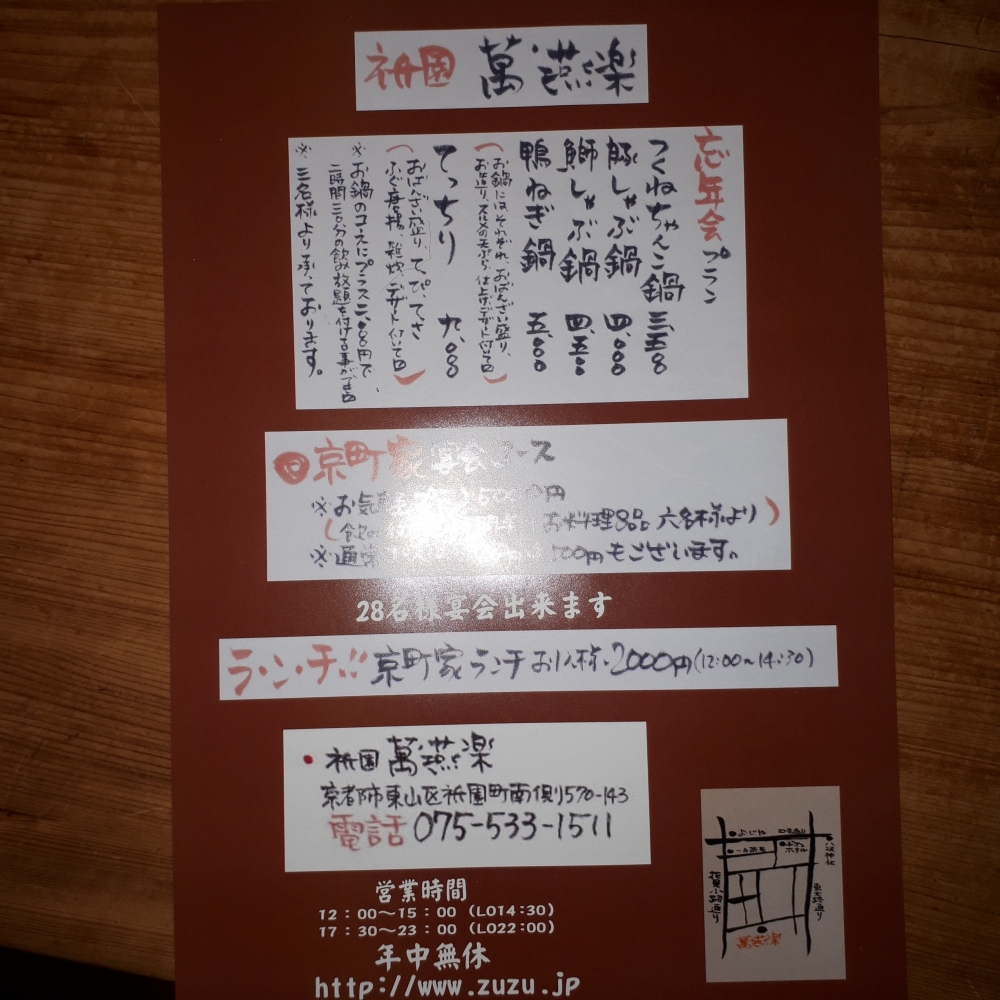 祇園 萬燕楽
忘年会プラン
つくねちゃんこ鍋 三、五〇〇
豚しゃぶ鍋 四、〇〇〇
鰤しゃぶ鍋 四、五〇〇
鴨ねぎ鍋 五、〇〇〇
(お鍋にはそれぞれ、おばんざい盛り、
お造り、スルメの天ぷら 仕上げ、デザート付いて口)
てっちり 九、〇〇〇
(おばんざい盛り、てっぴ、てっさ
ふぐ唐揚、雑炊、デザート付いて口)
※お鍋のコースにプラス二、〇〇〇円で
二時間三〇分の飲み放題を付ける事ができ口
※三名様より承っております。
京町家宴会コース
※お気 500 円
(飲 お料理8品 六名様より)
※通常 500円もございます。
28名様宴会出来ます
ラ・ン・チ!! 京町家ランチ お1人様・2000円(12:00~14:30)
・祇園 萬燕楽
京都市東山区祇園町南側570-143
電話 075-533-1511
よじや
八坂神社
花見小路通り
東大路通り
萬燕楽
営業時間
12:00~15:00 (LO14:30)
17:30~23:00 (LO22:00)
年中無休
http://www.zuzu.jp